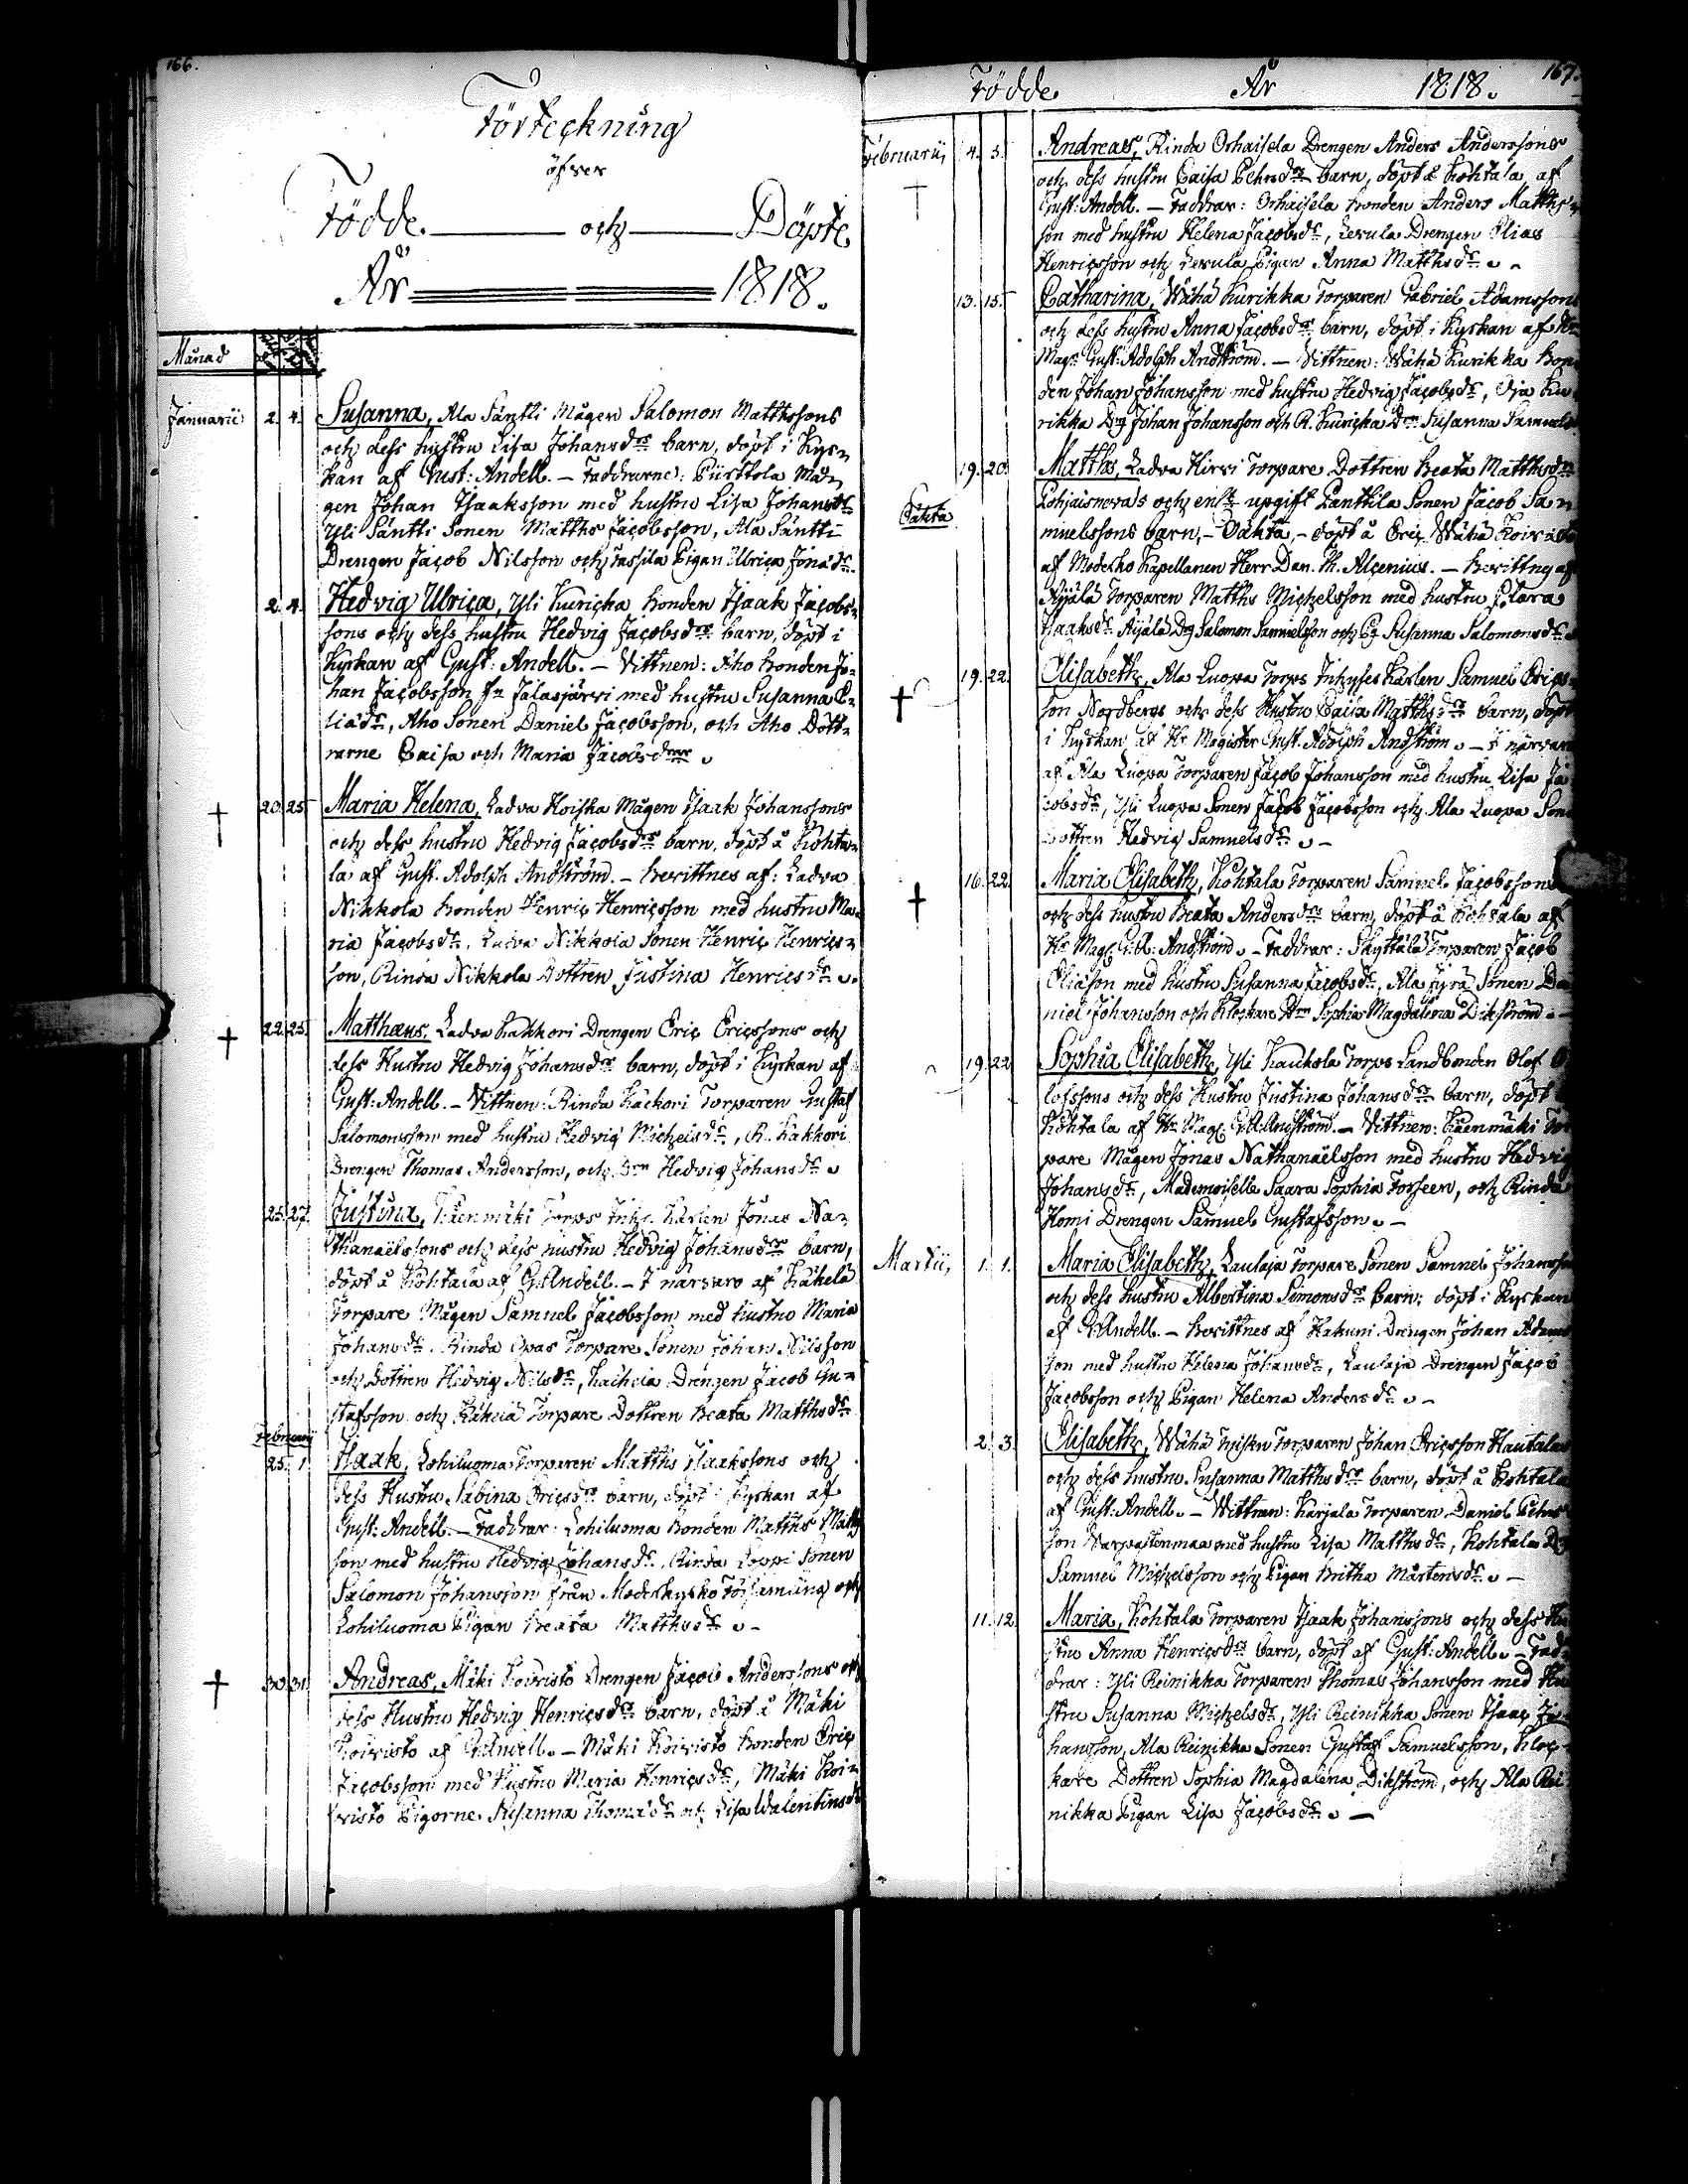 166.
Förteckning
öfver
Födde och Döpte
År 1818.
Månad
Januarii 2. 4. Susanna, Ala Säntti Mågen Salomon Matthssons
och dess hustru Lisa Johansdrs barn, döpt i Kyr-
kan af Gust: Andell. – Faddrarne: Må-
gen Johan Isaaksson med hustru Lisa Johansdr
Yli Säntti Sonen Matths Jacobsson, Ala Säntti
Drengen Jacob Nilsson och Pigan Ulrica dr.
2. 4. Hedvig Ulrica, Yli Kuricka bonden Isaak Jacobs-
sons och dess hustru Hedvig Jacobsdrs barn, döpt i
Kyrkan af Gust: Andell. – Vittnen: Aho bonden Jo-
han Jacobsson fr Jalasjärvi med hustru Susanna E-
liædr, Aho Sonen Daniel Jacobsson, och Aho Dött-
rarne Caisa och Maria Jacobsdrar
20. 25 Maria Helena, Ladva Koiska Mågen Isaak Johanssons
och dess hustru Hedvig Jacobsdrs barn, döpt å Kohta-
la af Gust. Adolph Andström. – Bevittnes af: Ladva
Nikkola bonden Henric Henricsson med hustru Ma-
ria Jacobsdr. Ladva Nikkola Sonen Henric Henrics-
son, Rinda Nikkola Dottren Justina Henricsdr
22. 25. Matthæus, Ladva Kakkori Drengen Eric Ericssons och
dess Hustru Hedvig Johansdrs barn, döpt i Kyrkan af
Gust: Andell. – Vittnen: Rinda Kackori Torparen Gustaf
Salomonsson med hustru Hedvig Michelsdr, R. Kakkori
Drengen Thomas Andersson, och Hedvig Johansdr
25. 27. Justina, Käenmäki Torps Inhs. Karlen Jonas Na-
thanaëlssons och dess hustru Hedvig Johansdrs barn,
döpt å Kohtala af G:Andell. – I närvaro af Kähelä
Torpare Mågen Samuel Jacobsson med hustru Maria
Johansdr. Rinda Opas Torpare Sonen Johan Nilsson
och Dottren Hedvig Nilsdr, Drengen Jacob Gu-
stafsson och Torpare Dottren Beata Matthsdr
Februarii
25. 1 Isaak, Lohiluoma Torparen Matths Isaakssons och
dess Hustru Sabina Ericsdrs barn, döpt i Kyrkan af
Gust: Andell. – Faddrar: Lohiluoma bonden Matths Matths
son med hustru Hedvig Johansdr, Rinda Sonen
Salomon Johansson från Moderkyrko Församling och
Lohiluoma Pigan Beata Matthsdr –
30. 31 Andreas, Mäki Koivisto Drengen Jacob Anderssons och
dess Hustru Hedvig Henricsdrs barn, döpt å Mäki
Koivisto af G:Andell. – Mäki Koivisto bonden Eric
Jacobsson med Hustru Maria Henricsdr, Mäki Koi-
visto Pigorne Susanna Thomædr och Lisa Walentinsdr
Födde År 1818. 167.
Februarii, 4. 5. Andreas, Rinda Orhaisela Drengen Anders Anderssons
och dess hustru Caisa Pehrsdrs barn, döpt å Kohtala af
Gust: Andell. – Faddrar: Orhaisela bonden Anders Matths-
son med hustru Helena Jacobsdr, Drengen Elias
Henricsson och Pigan Anna Matthsdr –
13. 15. Catharina, Wähä Kurikka Torparen Gabriel Adamssons
och dess hustru Anna Jacobsdrs barn, döpt i Kyrkan af Hr
Magr Gust: Adolph Andström. – Vittnen: Wähä Kurikka bon-
den Johan Johansson med hustru Hedvig Jacobsdr, Oja Ku
rikka Dng Johan Johansson och R. Kuricka Susanna Samuels
19. 20. Matths, Ladva Hirvi Torpare Dottren Beata Matthsdrs
och enl upgift Panttila Sonen Jacob Sa-
Oäkta muelssons barn, – Oäkta, – döpt å Wähä Koivisto
af Moderko Kapellanen Herr Dan. Alcenius. – Bevittnes af
Äijälä Torparen Matths Michelsson med hustru Clara
Isaaksdr Äijälä Dng Salomon Samuelsson och Pg Susanna Salomonsdr
19. 22. Elisabeth, Ala Luopa Torps Inhyses Karlen Samuel Erics-
son Nordbergs och dess Hustru Caisa Matthsdrs barn, döpt
i Kyrkan af Hr Magister Gust. Adolph Andström. – I närvaro
af Ala Luopa Torparen Jacob Johansson med hustru Lisa Ja-
cobsdr, Yli Luopa Sonen Jacob Jacobsson och Ala Luopa Sone
Dottren Hedvig Samuelsdr –
16. 22. Maria Elisabeth, Kohtala Torparen Samuel Jacobssons
och dess hustru Beata Andersdrs barn, döpt å Kohtala af
Hr Mag G:A: Andström – Faddrar: Skyttälä Torparen Jacob
Eliæson med hustru Susanna Jacobsdr, Ala Jyrä Sonen Da
niel Johansson och Klockare Sophia Magdalena Dikström –
19. 22 Sophia Elisabeth, Yli Kaukola Torps Landbonden Olof O
lofssons och dess Hustru Justina Johansdrs barn, döpt å
Kohtala af Hr Mag G.A. Andström. – Vittnen: Käenmäki Tor
pare Mågen Jonas Nathanaëlsson med hustru Hedvig
Johansdr, Mademoiselle Saara Sophia Forseen, och Rinda
Homi Drengen Samuel Gustafsson –
Martii, 1. 1. Maria Elisabeth, Laulaja Torpare Sonen Samuel Johansson
och dess hustru Albertina Simonsdrs barn, döpt i Kyrkan
af G:Andell. – Bevittnes af Hakuni Drengen Johan Adams
son med hustru Helena Johansdr, Laulaja Drengen Jacob
Jacobsson och Pigan Helena Andersdr –
2. 3. Elisabeth, Wähä Torparen Johan Ericsson Hautala
och dess hustru Susanna Matthsdrs barn, döpt å Kohtala
af Gust: Andell. – Vittnen: Karjala Torparen Daniel Pehrs
son med hustru Lisa Matthsdr, Kohtala Dr
Samuel Michelsson och Pigan Britha Mårtensdr –
11. 12. Maria, Kohtala Torparen Isaak Johanssons och dess Hu
stru Anna Henricsdrs barn, döpt af Gust: Andell – Fad-
drar: Yli Reinikka Torparen Thomas Johansson med Hu
stru Susanna Michelsdr, Yli Reinikka Sonen Isaac Jo-
hansson, Ala Reinikka Sonen Gustaf Samuelsson, Kloc-
kare Dottren Sophia Magdalena Dikström, och Ala Rei
nikka Pigan Lisa Jacobsdr –